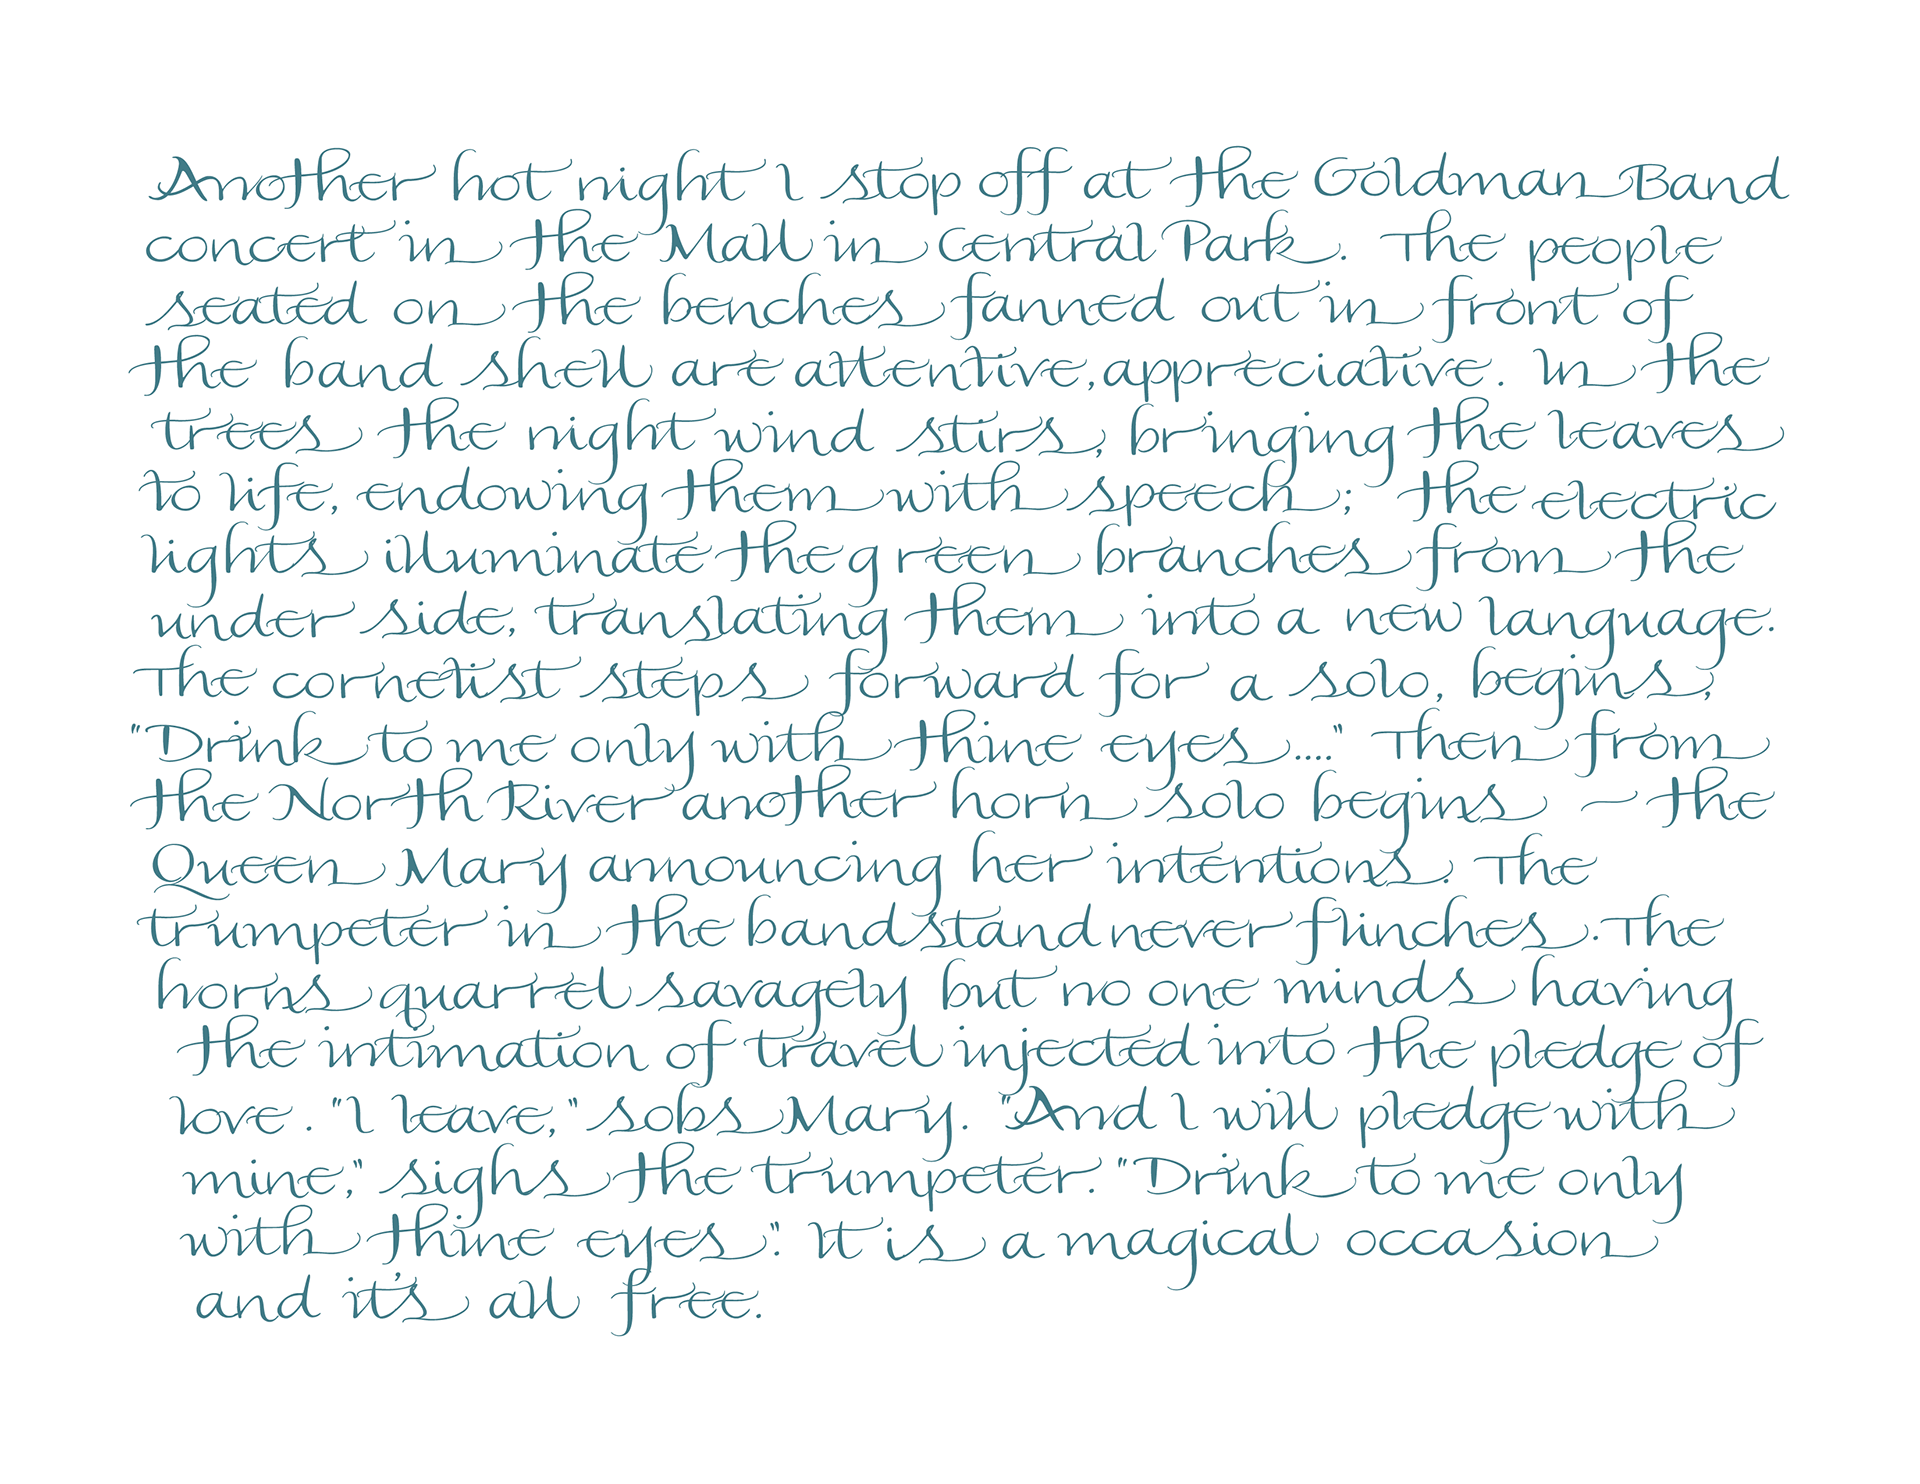 Another hot night I stop off at the Goldman Band
concert in the Mall in Central Park. The people
seated on the benches fanned out in front of
the band shell are attentive, appreciative. In the
trees the night wind stirs, bringing the leaves
to life, endowing them with speech; the electric
lights illuminate the green branches from the
under side, translating them into a new language.
The cornetist steps forward for a solo, begins,
"Drink to me only with thine eyes...." Then from
the North River another horn solo begins – the
Queen Mary announcing her intentions. The
trumpeter in the bandstand never flinches. The
horns quarrel savagely but no one minds having
the intimation of travel injected into the pledge of
love. "I leave," sobs Mary. "And I will pledge with
mine," sighs the trumpeter. "Drink to me only
with thine eyes". It is a magical occasion
and it's all free.